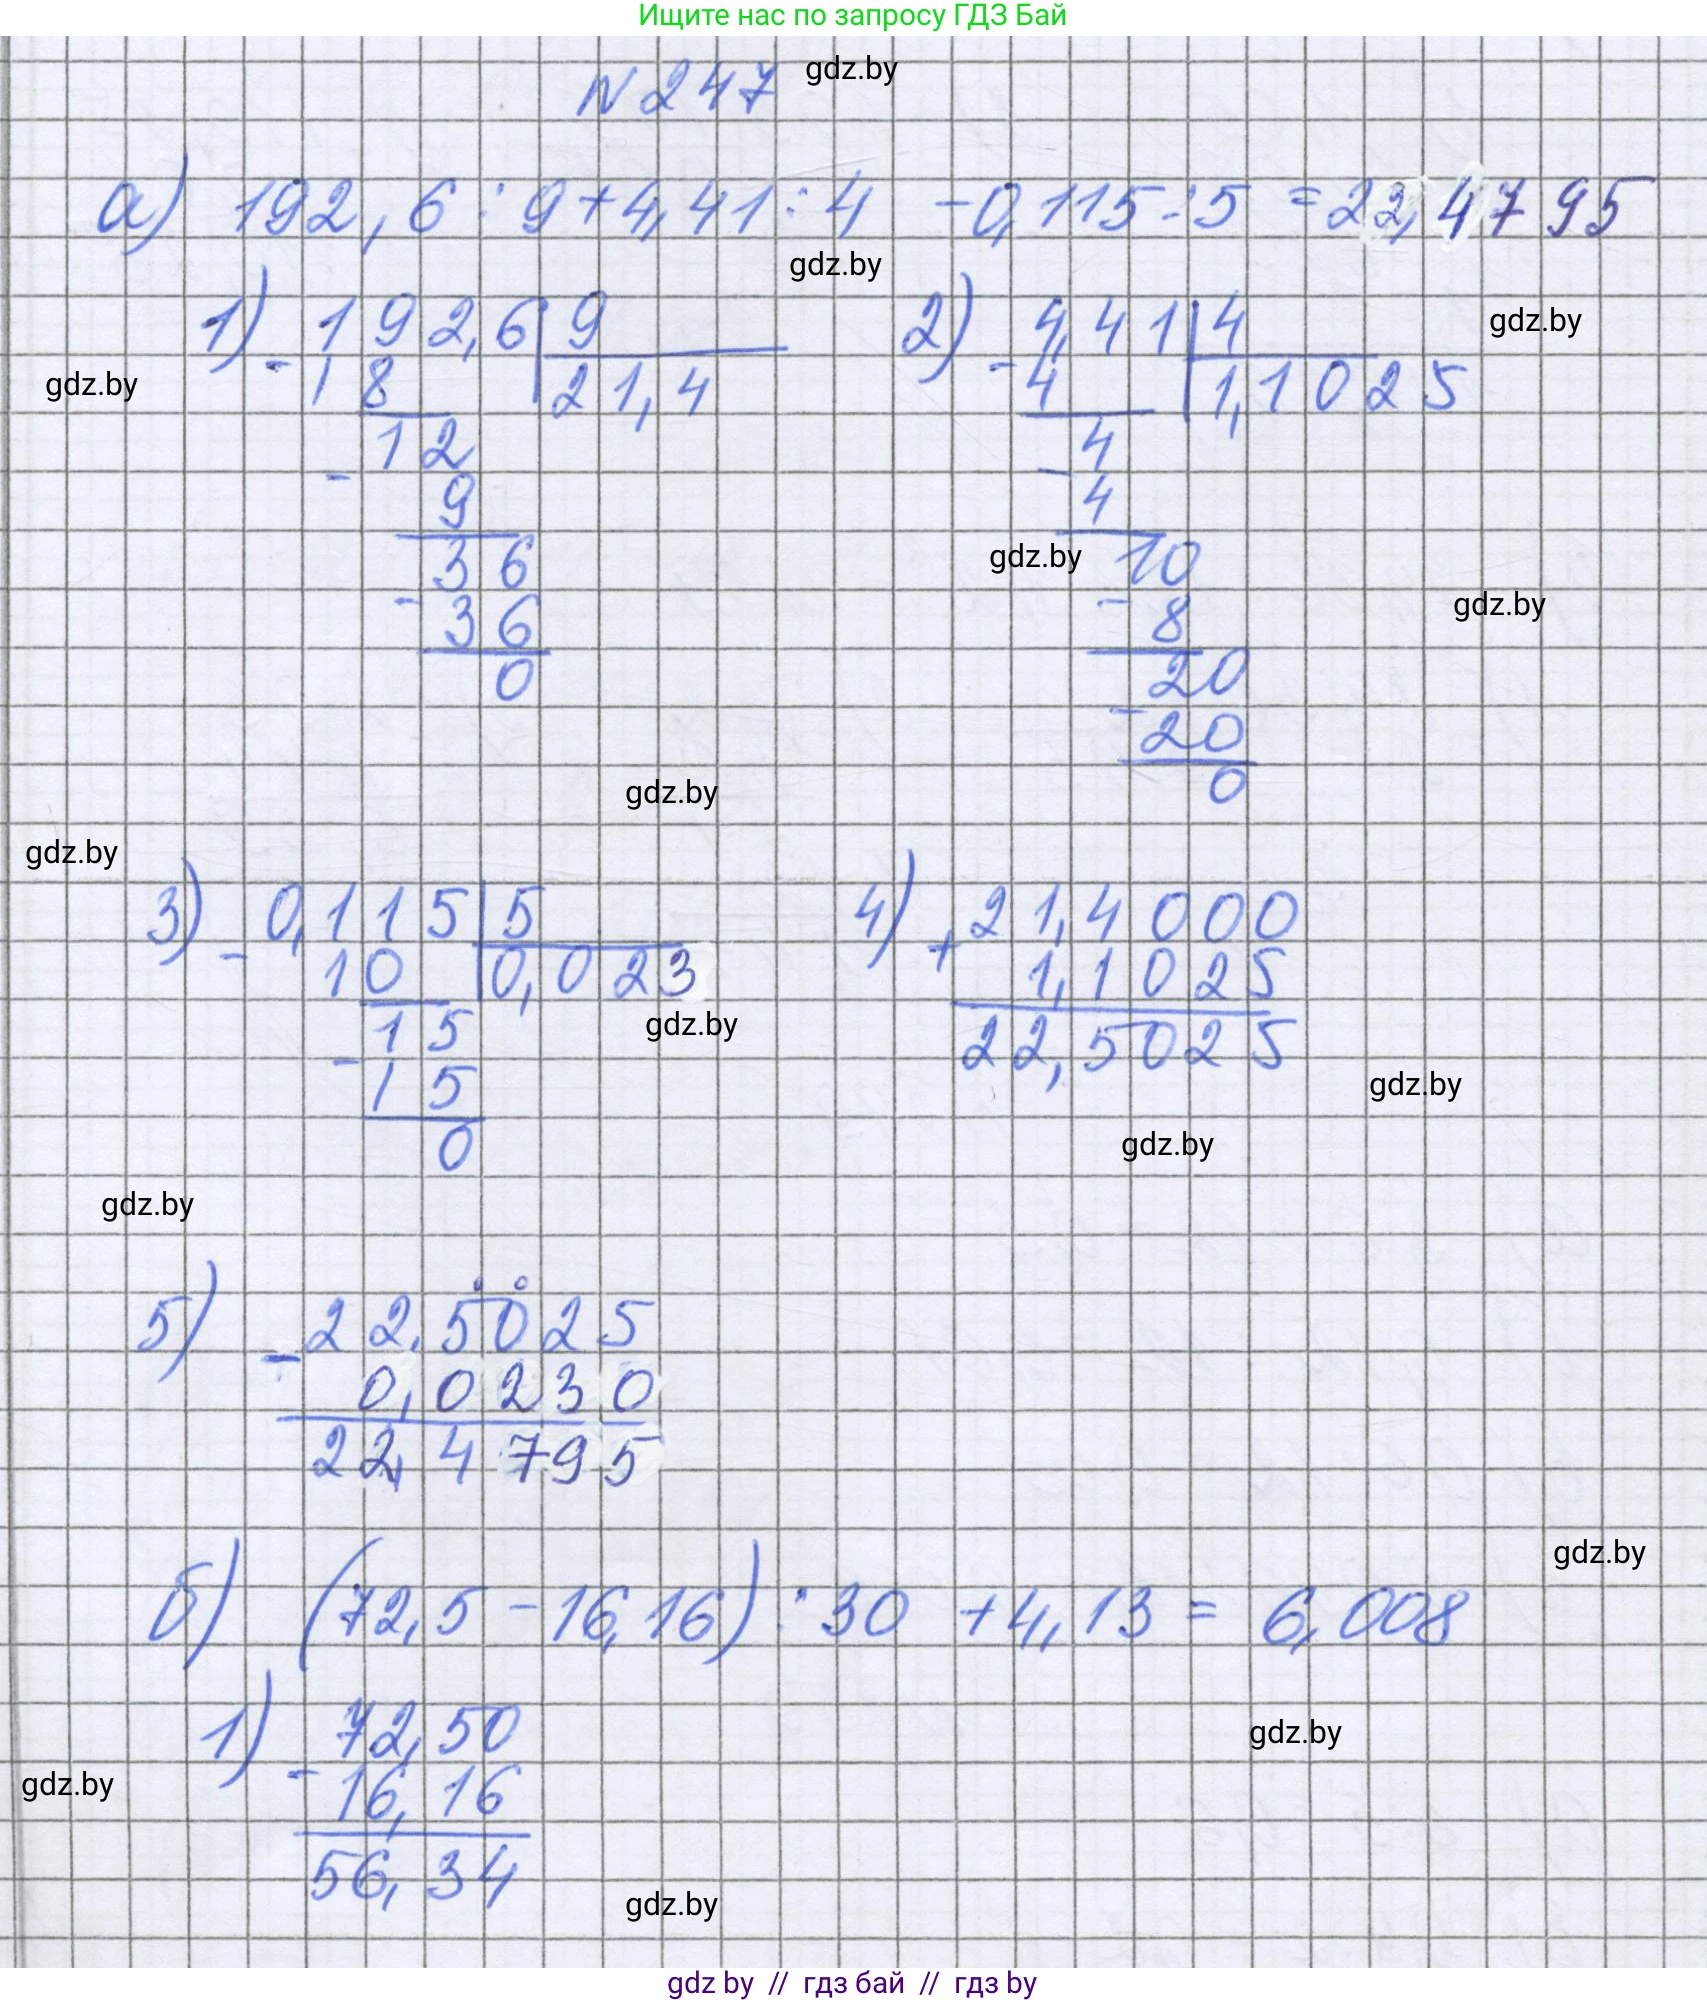 Ищите нас по запросу ГДЗ Бай
N247 gdz.by
а) 192,6 : 9 + 4,41 : 4 - 0,115 : 5 = 22,4795
gdz.by
1) 192,6 | 9 2) 4,41 | 4 gdz.by
gdz.by - 18 21,4 - 4 1,11025
12 4
- 9 - 4
36 gdz.by 10
- 36 - 8 gdz.by
0 20
- 20
gdz.by 0
gdz.by
3) 0,115 | 5 4) 21,4000
- 10 0,023 + 1,1025
15 gdz.by 22,5025
- 15 gdz.by
0 gdz.by
gdz.by
5) 22,5025
- 0,0230
22,4795
gdz.by
б) (72,5 - 16,16) : 30 + 4,13 = 6,008
1) 72,50 gdz.by
gdz.by - 16,16
56,34
gdz.by
gdz by // гдз бай // гдз by